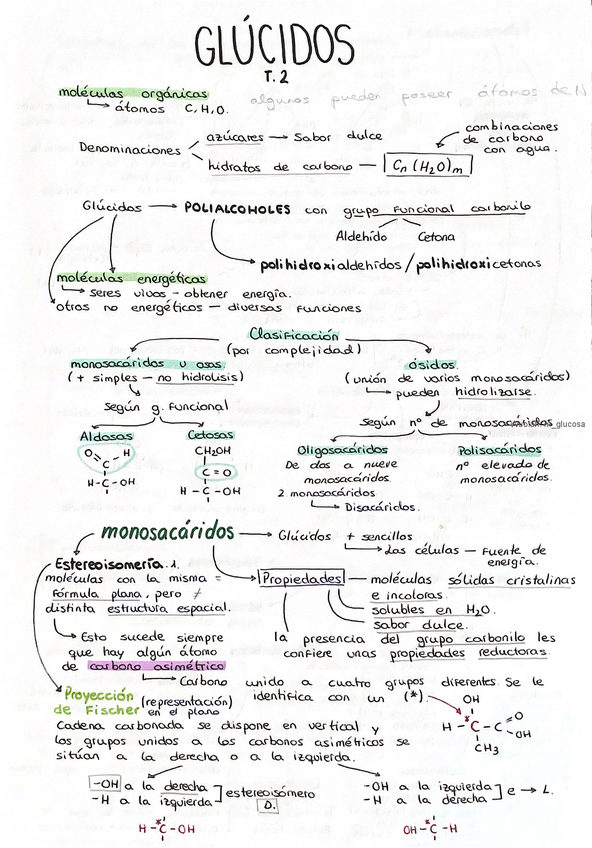 GLÚCIDOS
T.2
moléculas orgánicas
átomos C, H, O.
algunos pueden poseer átomos de N
Denominaciones
azúcares → Sabor dulce
hidratos de carbono — Cn (H2O)m
combinaciones
de carbono
con agua.
Glúcidos → POLIALCOHOLES con grupo funcional carbonilo
Aldehído Cetona
polihidroxialdehídos / polihidroxicetonas
moléculas energéticas
seres vivos - obtener energía.
otros no energéticos — diversas funciones
Clasificación
(por complejidad)
monosacáridos u osas
(+ simples — no hidrolisis)
según g. funcional
Aldosas
O H
C
H-C-OH
Cetosas
CH2OH
C=O
H-C-OH
ósidos.
(unión de varios monosacáridos)
pueden hidrolizarse.
según nº de monosacáridos
glucosa
Oligosacáridos
De dos a nueve
monosacáridos.
2 monosacáridos
Disacáridos.
Polisacáridos.
nº elevado de
monosacáridos.
monosacáridos → Glúcidos + sencillos
Las células — Fuente de
energía.
Estereoisomería.
moléculas con la misma =
fórmula plana, pero ≠
distinta estructura espacial.
Propiedades — moléculas sólidas cristalinas
e incoloras.
solubles en H2O.
sabor dulce.
la presencia del grupo carbonilo les
confiere unas propiedades reductoras.
Esto sucede siempre
que hay algún átomo
de carbono asimétrico
Carbono unido a cuatro grupos diferentes. Se le
identifica con un (*).
OH
H-C*-C O
OH
CH3
Proyección
de Fischer (representación)
en el plano
Cadena carbonada se dispone en vertical y
los grupos unidos a los carbonos asimétricos se
sitúan a la derecha o a la izquierda.
-OH a la derecha
-H a la izquierda
estereoisómero
D.
H-C*-OH
-OH a la izquierda
-H a la derecha
e → L.
OH-C*-H